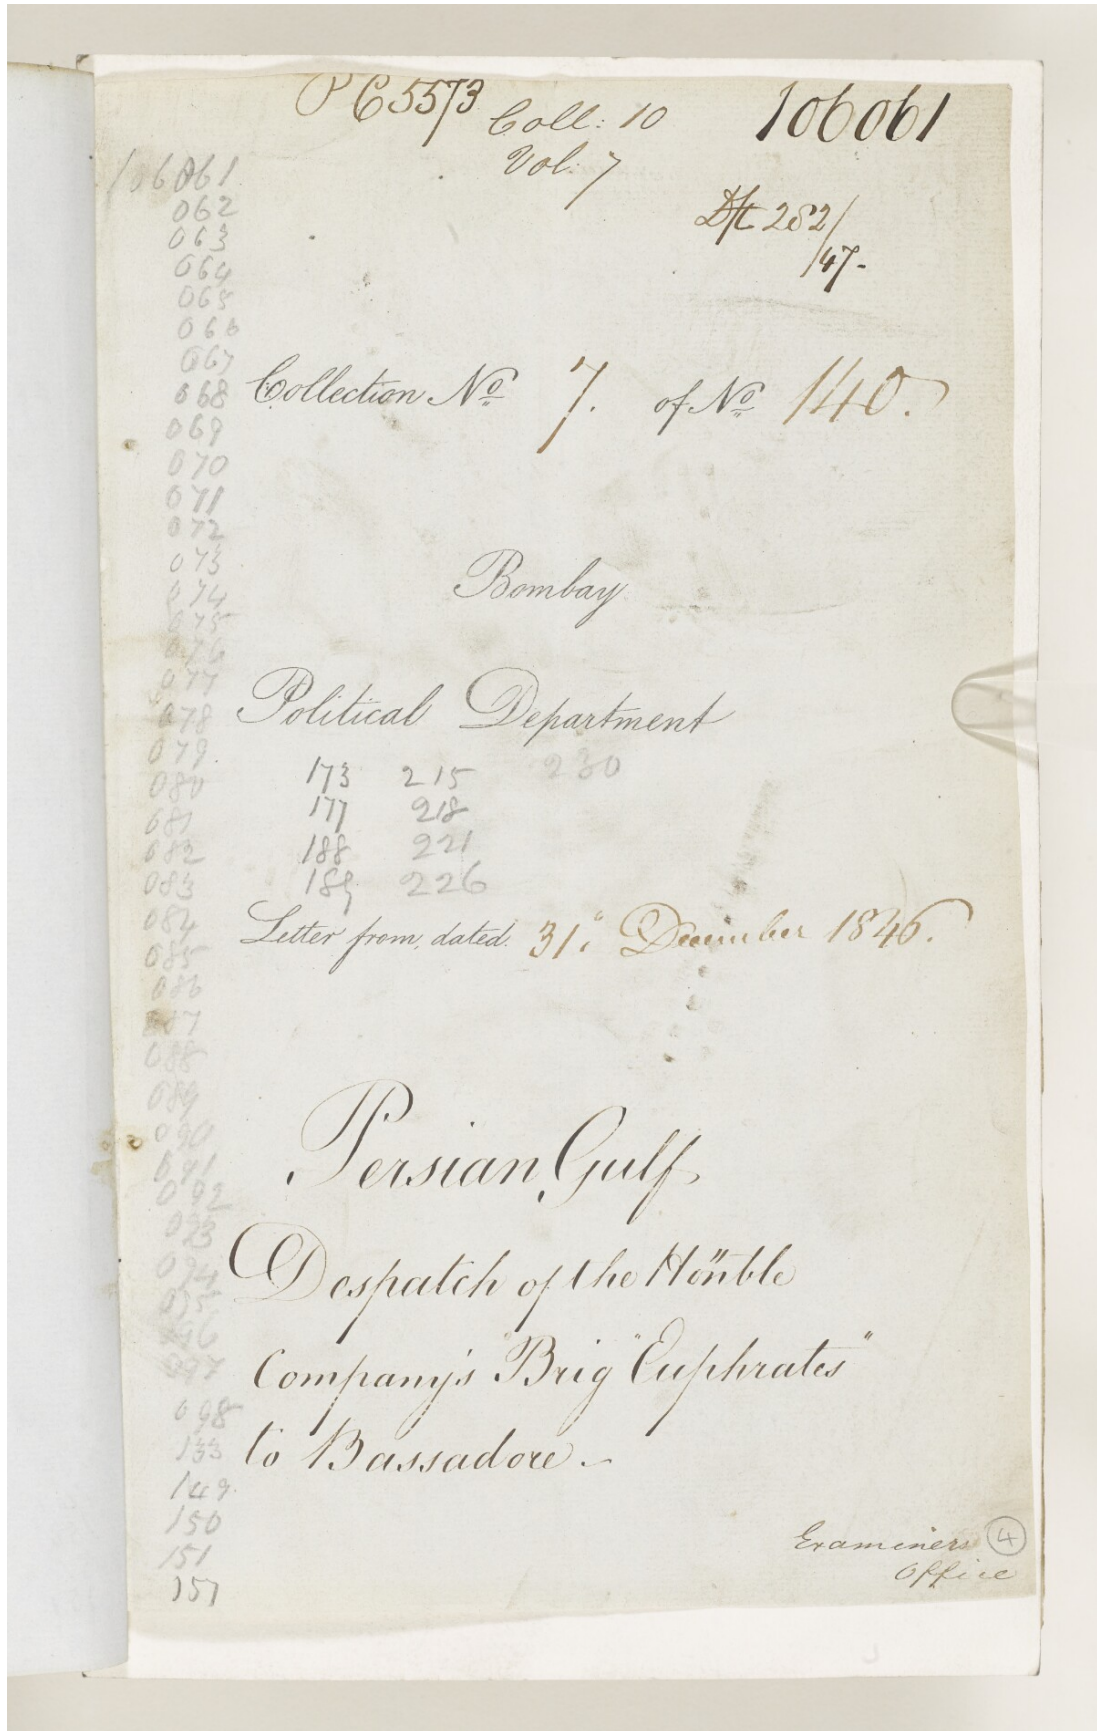 P C 5573
Coll: 10
Vol: 7
106061
Dft 282/
/47-
106061
062
063
064
065
066
067
068
069
070
071
072
073
074
075
076
077
078
079
080
081
082
083
084
085
086
087
088
089
090
091
092
093
094
095
096
097
098
133
149
150
151
157
Collection No 7. of No 140.
Bombay
Political Department
173 215 230
177 218
188 221
189 226
Letter from, dated. 31. December 1846.
Persian Gulf
Despatch of the Honble
Company's "Brig "Euphrates"
to Bassadore.-
Examiners
Office
4